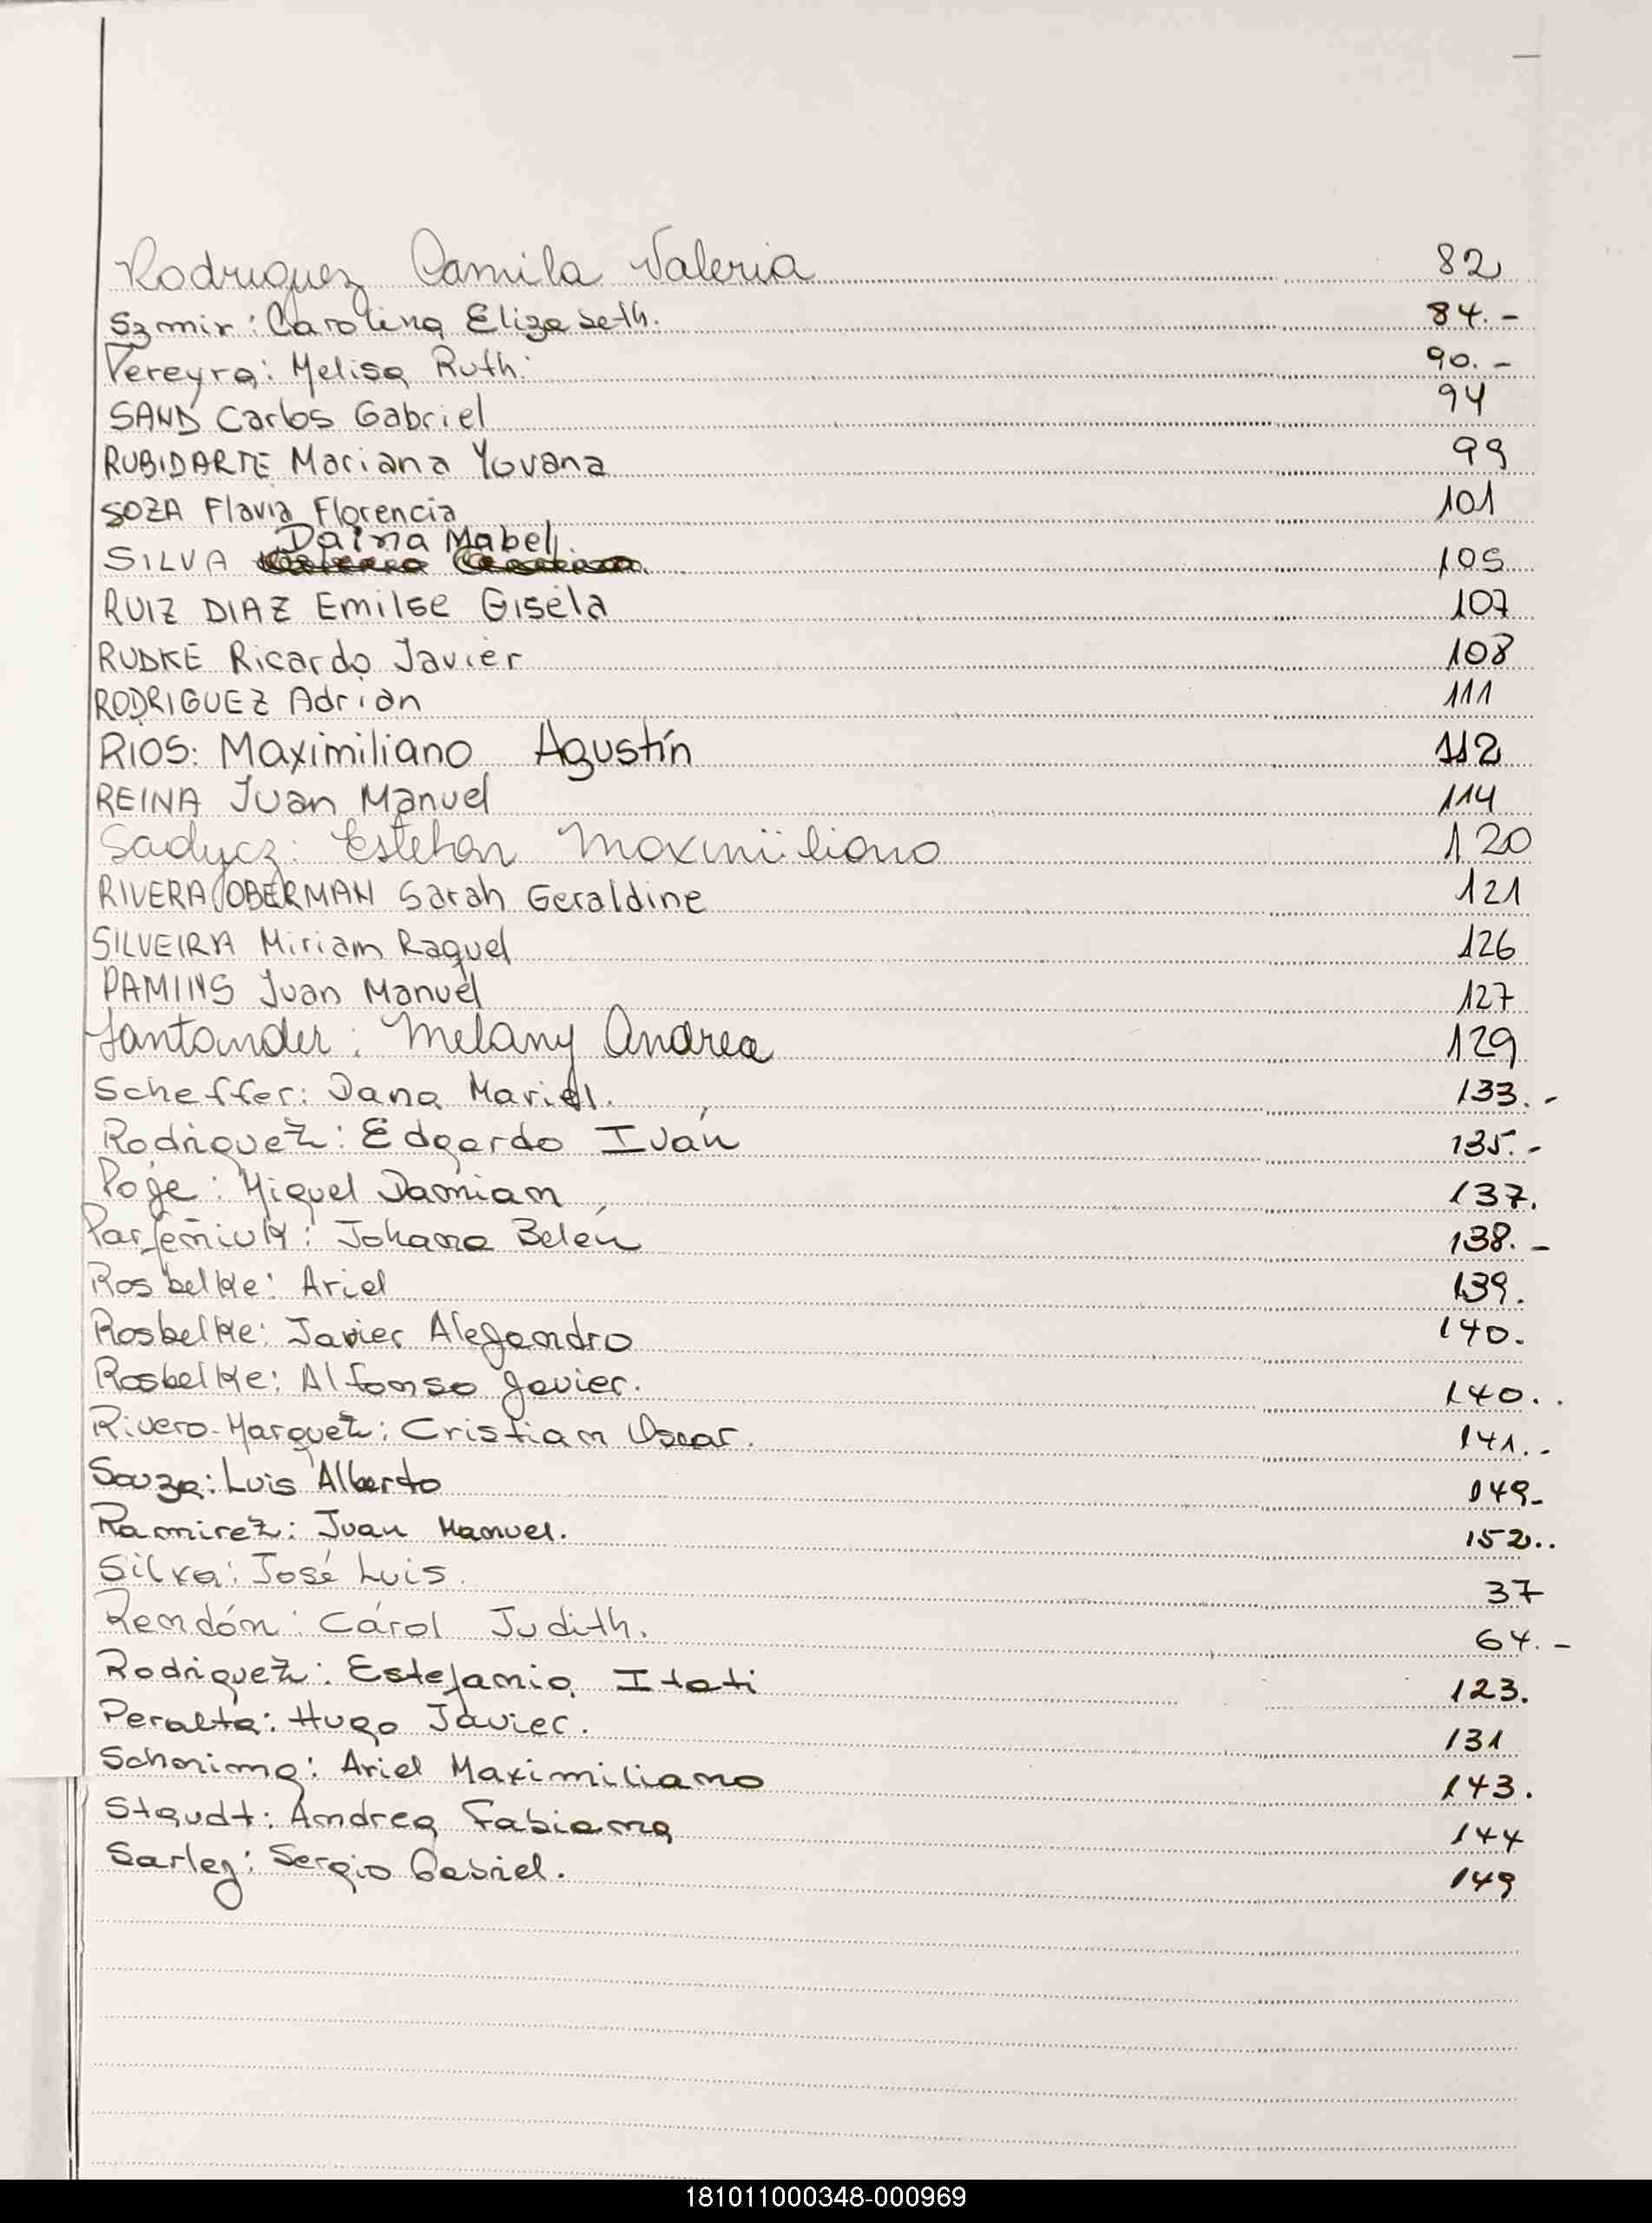 Rodriguez Camila Valeria 82
Szmir: Carolina Elizabeth. 84.-
Pereyra: Melisa Ruth. 90.-
SAND Carlos Gabriel 94
RUBIDARTE Mariana Yovana 99
SOZA Flavia Florencia 101
Daina Mabel
SILVA 105
RUIZ DIAZ Emilse Gisela 107
RUDKE Ricardo Javier 108
RODRIGUEZ Adrian 111
RIOS: Maximiliano Agustín 112
REINA Juan Manuel 114
Sadycz: Esteban Maximiliano 120
RIVERA OBERMAN Sarah Geraldine 121
SILVEIRA Miriam Raquel 126
PAMINS Juan Manuel 127
Santander: Melany Andrea 129
Scheffer: Dana Mariel. 133.-
Rodriguez: Edgardo Iván 135.-
Poje: Miguel Damian 137.
Parfeniuk: Johana Belén 138.-
Rosbelke: Ariel 139.
Rosbelke: Javier Alejandro 140.
Rosbelke: Alfonso Javier. 140..
Rivero-Marquez: Cristian Oscar. 141.-
Souza: Luis Alberto 149-
Ramirez: Juan Manuel. 152..
Silva: José Luis. 37
Rendón: Cárol Judith. 64.-
Rodriguez: Estefania Itati 123.
Peralta: Hugo Javier. 131
Schoning: Ariel Maximiliano 143.
Staudt: Andrea Fabiana 144
Sarlej: Sergio Gabriel. 149
181011000348-000969